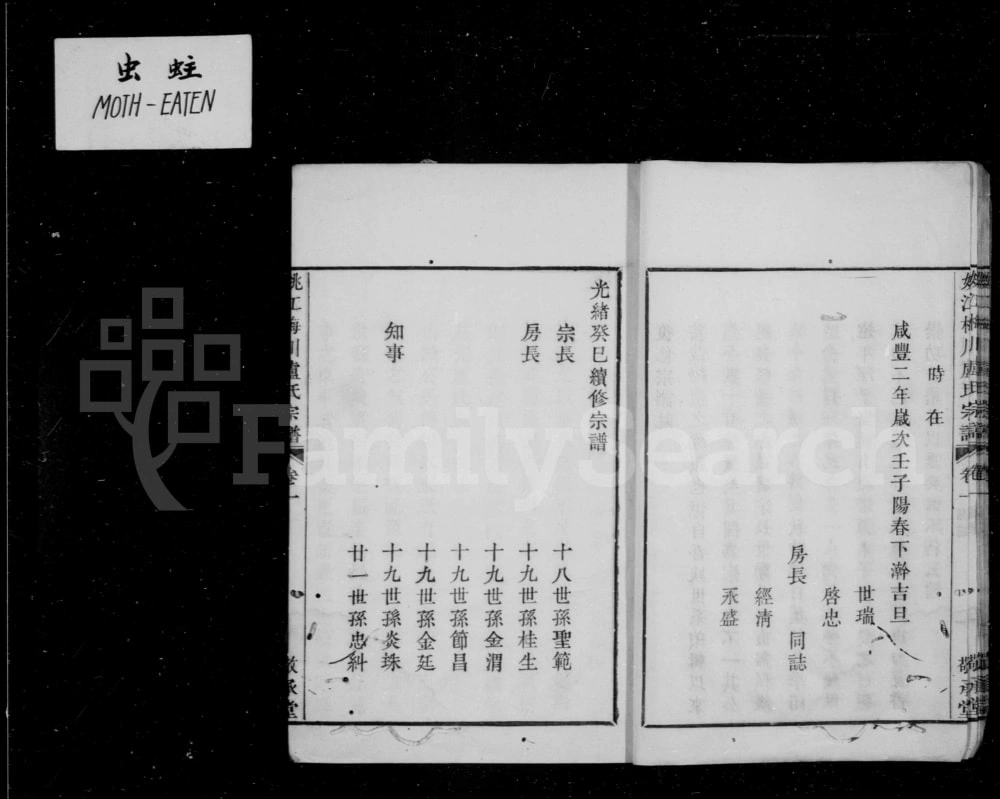 虫蛀
MOTH-EATEN
時在
咸豐二年歲次壬子陽春下澣吉旦
世瑞
啓忠
房長 同誌
經清
永盛
光緒癸巳續修宗譜
宗長 十八世孫聖範
房長 十九世孫桂生
十九世孫金渭
十九世孫節昌
十九世孫金廷
知事 十九世孫炎珠
廿一世孫忠糾
姚江梅川盧氏宗譜 卷一 敬承堂
姚江梅川盧氏宗譜 卷一 敬承堂
FamilySearch